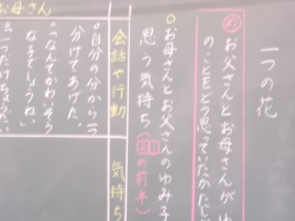 一つの花
め お父さんとお母さんがゆ
のことをどう思っていたかたし
○お母さんとお父さんのゆみ子
思う気持ち(21の前半)
会話や行動 気持ち
お母さん
○自分の分から一つ
分けてあげた。
なんてかわいそう
な子でしょうね。